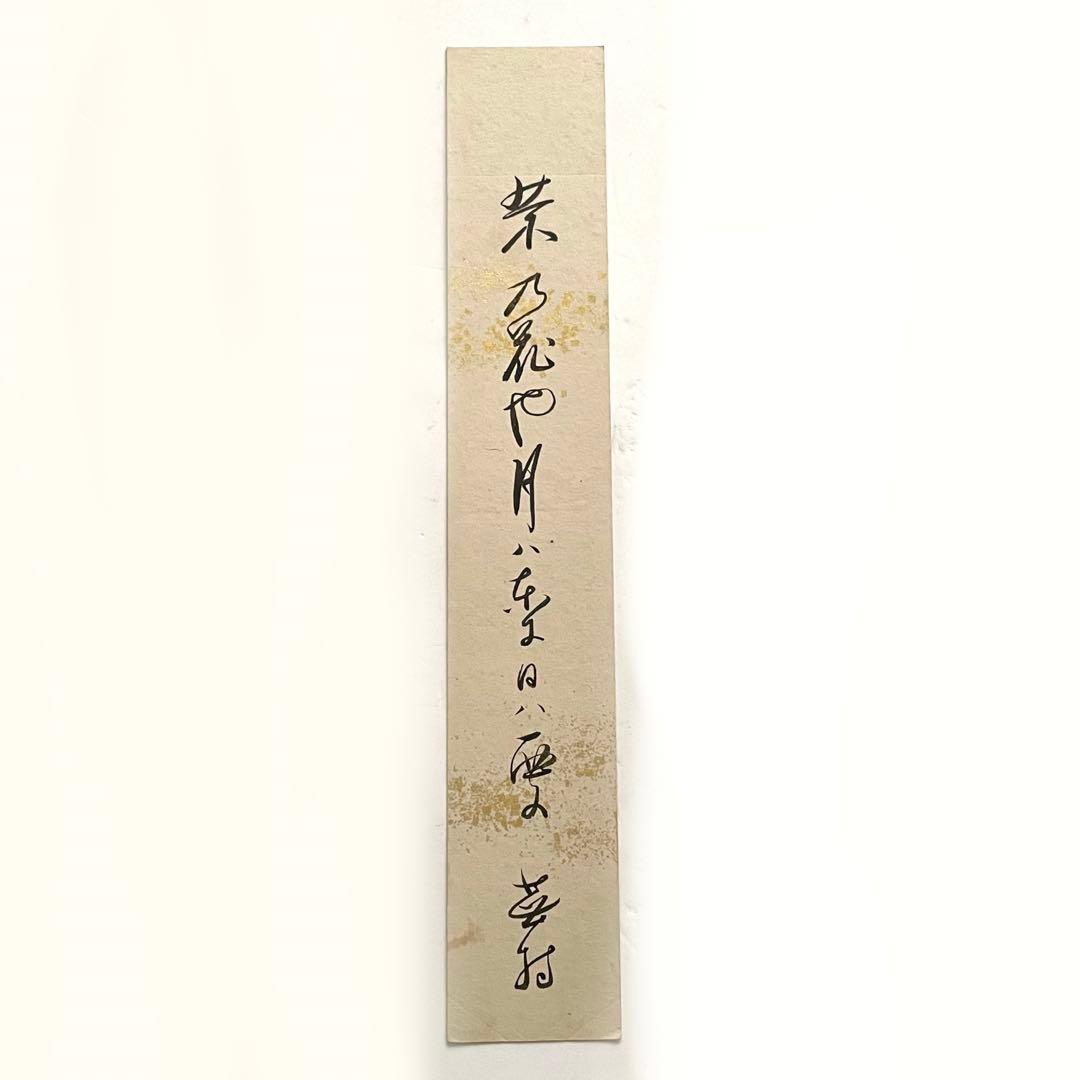 菜乃花や月ハ東に日ハ西に 蕪村